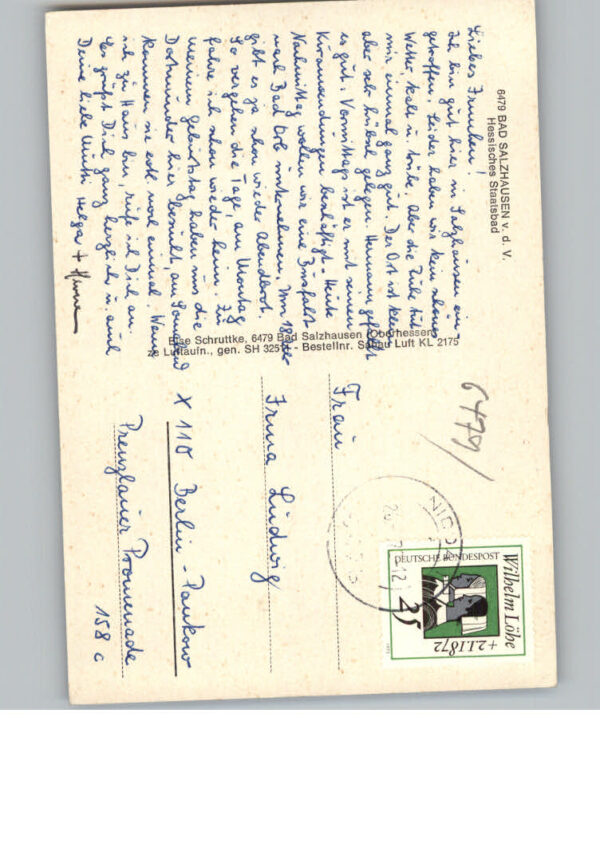 6479 BAD SALZHAUSEN v. d. V.
Hessisches Staatsbad
Liebes Frauchen!
Ich bin gut hier in Salzhausen ein-
getroffen. Leider haben wir kein schönes
Wetter, kalt u. trübe. Aber die Ruhe tut
mir einmal ganz gut. Der Ort ist klein
aber sehr hübsch gelegen. Hermann geht
es gut. Vormittags ist er mit seinen
Kuranwendungen beschäftigt. Heute
Nachmittag wollen wir eine Busfahrt
nach Bad Orb unternehmen. Um 18 Uhr
gibt es ja schon wieder Abendbrot.
So vergehen die Tage, am Montag
fahre ich schon wieder heim. Zu
meinem Geburtstag haben mir die
Dortmunder hier besucht, am Sonnabend
kommen sie evtl. noch einmal. Wenn
ich zu Haus bin, rufe ich Dich an.
Es grüßt Dich ganz herzlich u. auch
Deine liebe Mutti Helga +
Else Schruttke, 6479 Bad Salzhausen (Oberhessen)
Luftaufn., gen. SH 325 - Bestellnr. Schau Luft KL 2175
6479
Frau
Irma Ludwig
X 110 Berlin - Pankow
Prenzlauer Promenade
158 c
NIDDA
DEUTSCHE BUNDESPOST
Wilhelm Löhe
+ 2.1.1872
25